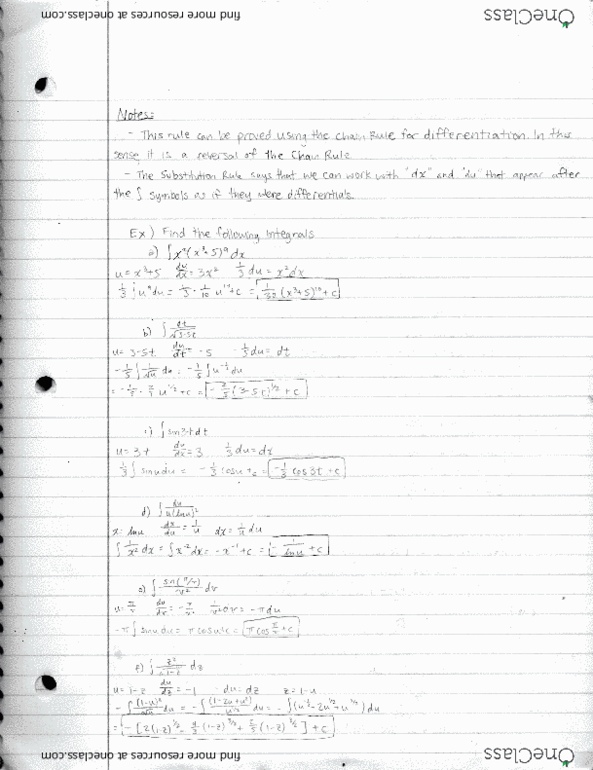 find more resources at oneclass.com
OneClass
Notes:
- This rule can be proved using the Chain Rule for differentiation. In this
sense it is a reversal of the Chain Rule
- The Substitution Rule says that we can work with "dx" and "du" that appear after
the ∫ symbols as if they were differentials.
Ex) Find the following Integrals
a) ∫x²(x³+5)⁹dx
u = x³+5 du/dx = 3x² 1/3 du = x²dx
1/3 ∫u⁹du = 1/3 · 1/10 u¹⁰+c =
b) ∫ dt/√3-5t
u = 3-5t du/dt = -5 -1/5 du = dt
-1/5 ∫ 1/√u du = -1/5 ∫u^-1/2 du
u^1/2 + c = -2/5 (3-5t)^1/2 + c
c) ∫sin3tdt
u = 3t du/dx = 3 1/3 du = dx
1/3 ∫sinudu = -1/3 cosu + c = -1/3 cos3t + c
d) ∫ du/u(lnu)²
x = lnu dx/du = 1/u dx = 1/u du
∫ 1/x² dx = ∫x⁻²dx = -x⁻¹ + c = - 1/lnu + c
e) ∫ sin(π/v)/v² dv
u = π/v
-π ∫sinudu = π cosu + c = π cos π/v + c
f) ∫ z²/√1-z dz
u = 1-z du/dz = -1 -du = dz z = 1-u
-∫ (1-u)²/√u du = -∫ (1-2u+u²)/u^1/2 du = -∫(u^-1/2 - 2u^1/2 + u^3/2)du
= -[2(1-z)^1/2 - 4/3 (1-z)^3/2 + 2/5 (1-z)^5/2] + c
find more resources at oneclass.com
OneClass